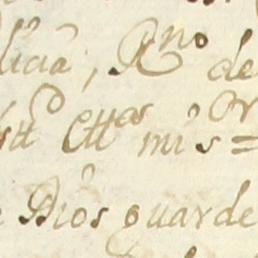 licia, R.no de
Ett.as mis
Dios guarde